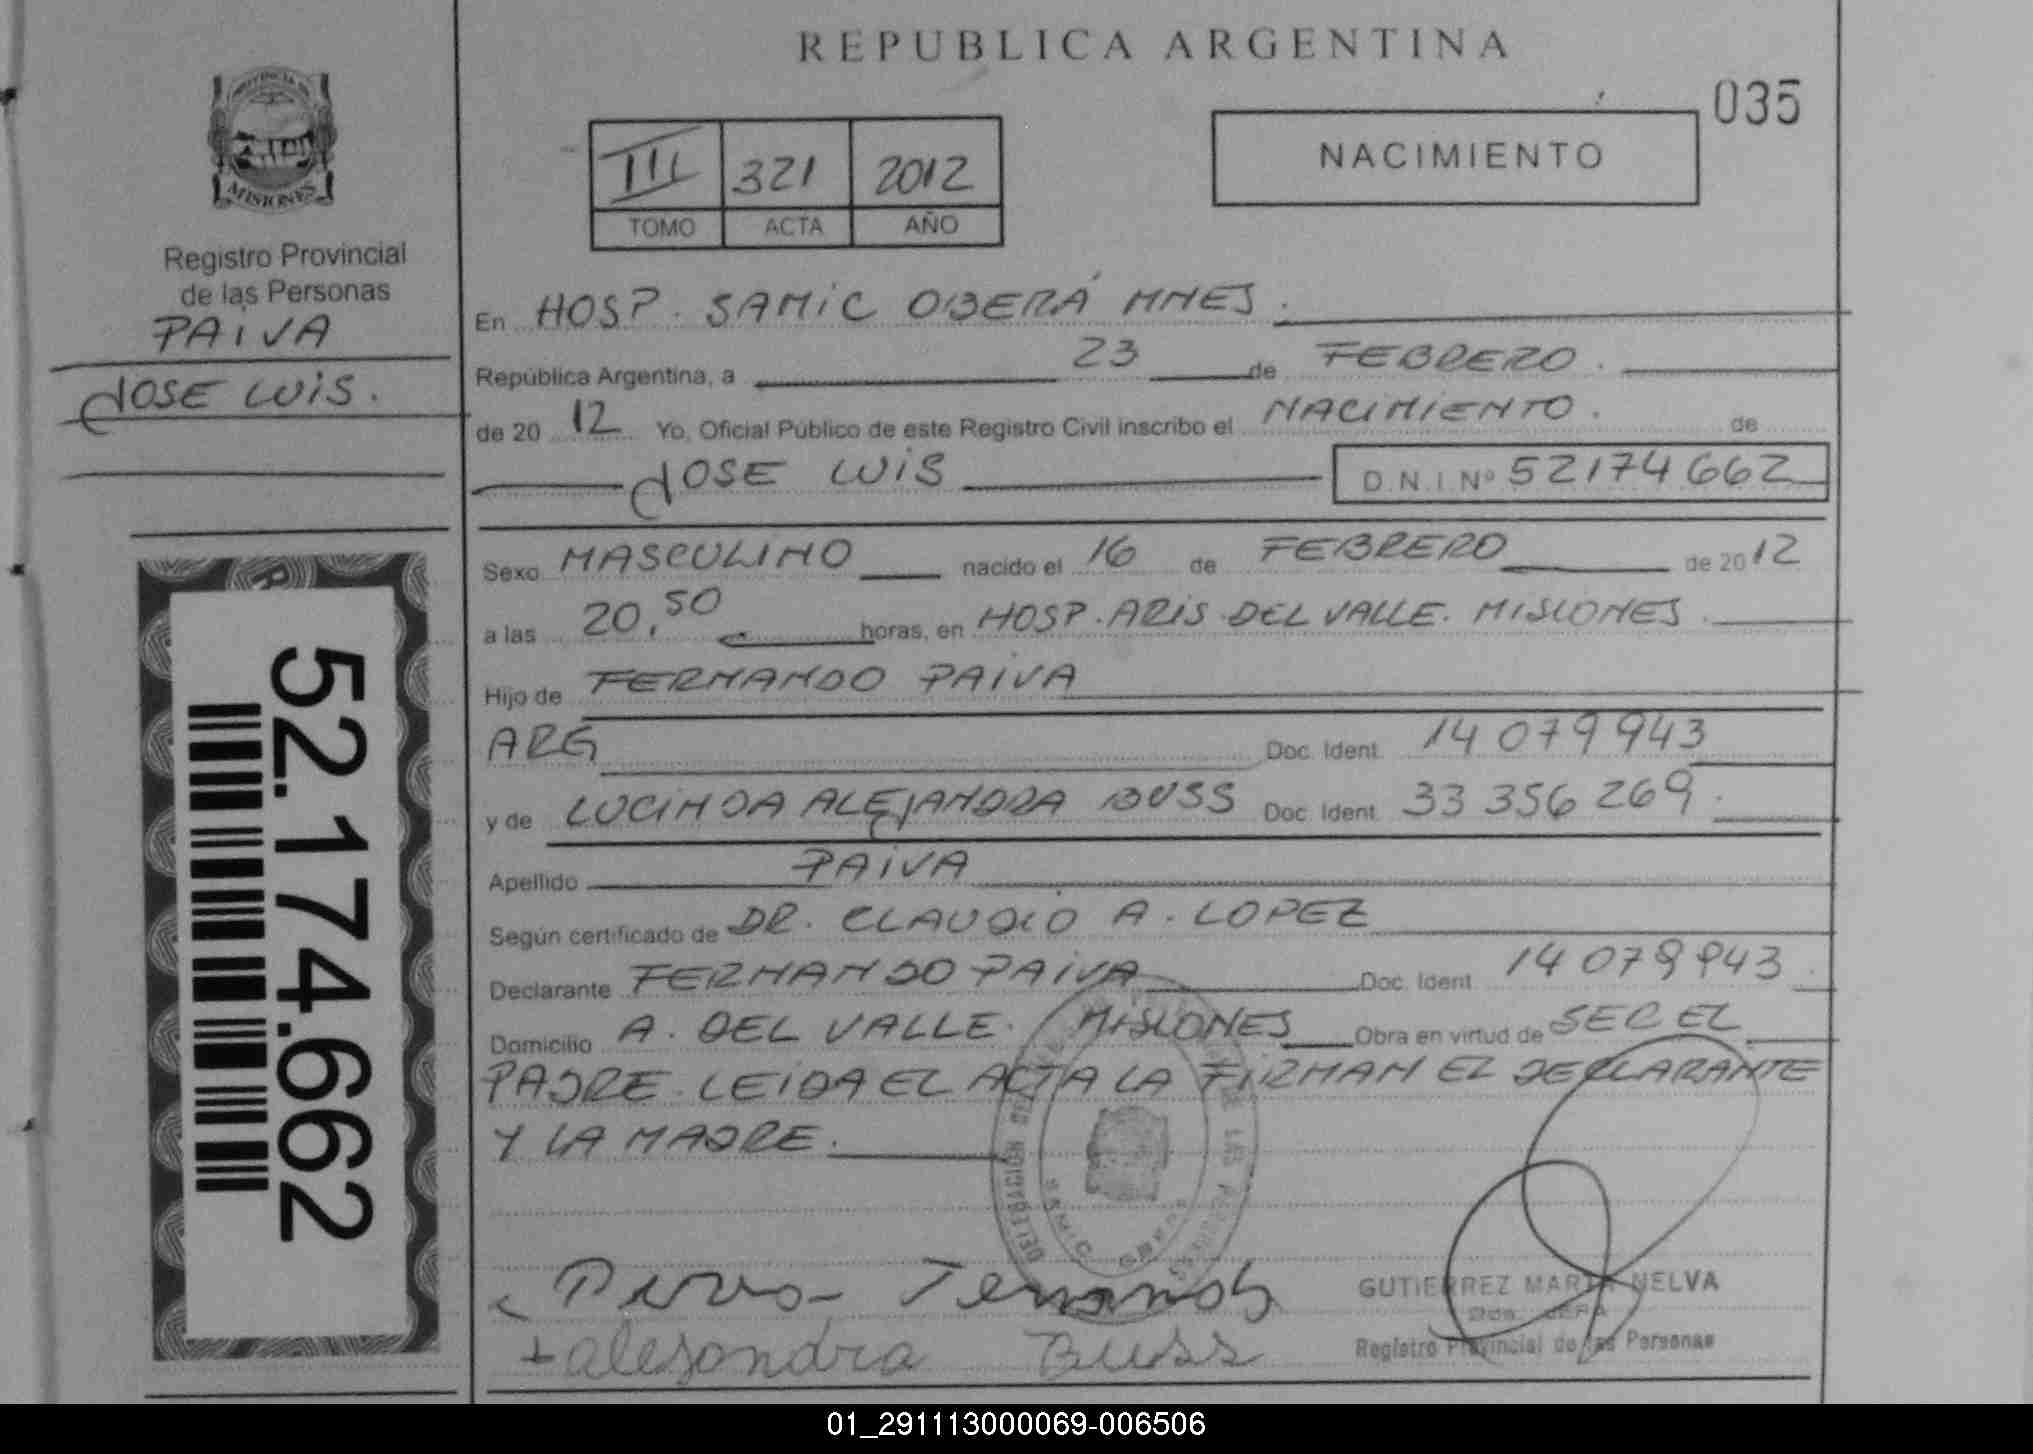 REPUBLICA ARGENTINA
035
PROVINCIA DE
MISIONES
Registro Provincial
de las Personas
PAIVA
JOSE LUIS.
52.174.662
III 321 2012
TOMO ACTA AÑO
NACIMIENTO
En HOSP. SAMIC OBERÁ MNES.
República Argentina, a 23 de FEBRERO.
de 20 12 Yo, Oficial Público de este Registro Civil inscribo el NACIMIENTO. de
JOSE LUIS D.N.I. Nº 52174662
Sexo MASCULINO nacido el 16 de FEBRERO de 20 12
a las 20,50 horas, en HOSP. ARIS. DEL VALLE. MISIONES
Hijo de FERNANDO PAIVA
ARG Doc. Ident. 14 079 943
y de LUCINDA ALEJANDRA BUSS Doc. Ident. 33 356 269.
Apellido PAIVA
Según certificado de DR. CLAUDIO A. LOPEZ
Declarante FERNANDO PAIVA Doc. Ident. 14 079 943
Domicilio A. DEL VALLE. MISIONES Obra en virtud de SER EL
PADRE. LEIDA EL ACTA LA FIRMAN EL DECLARANTE
Y LA MADRE.
DELEGACIÓN DE LAS PERSONAS
SAMIC OBERA
alejandra Buss
GUTIERREZ MARTA NELVA
JEFA
Registro Provincial de las Personas
01_291113000069-006506